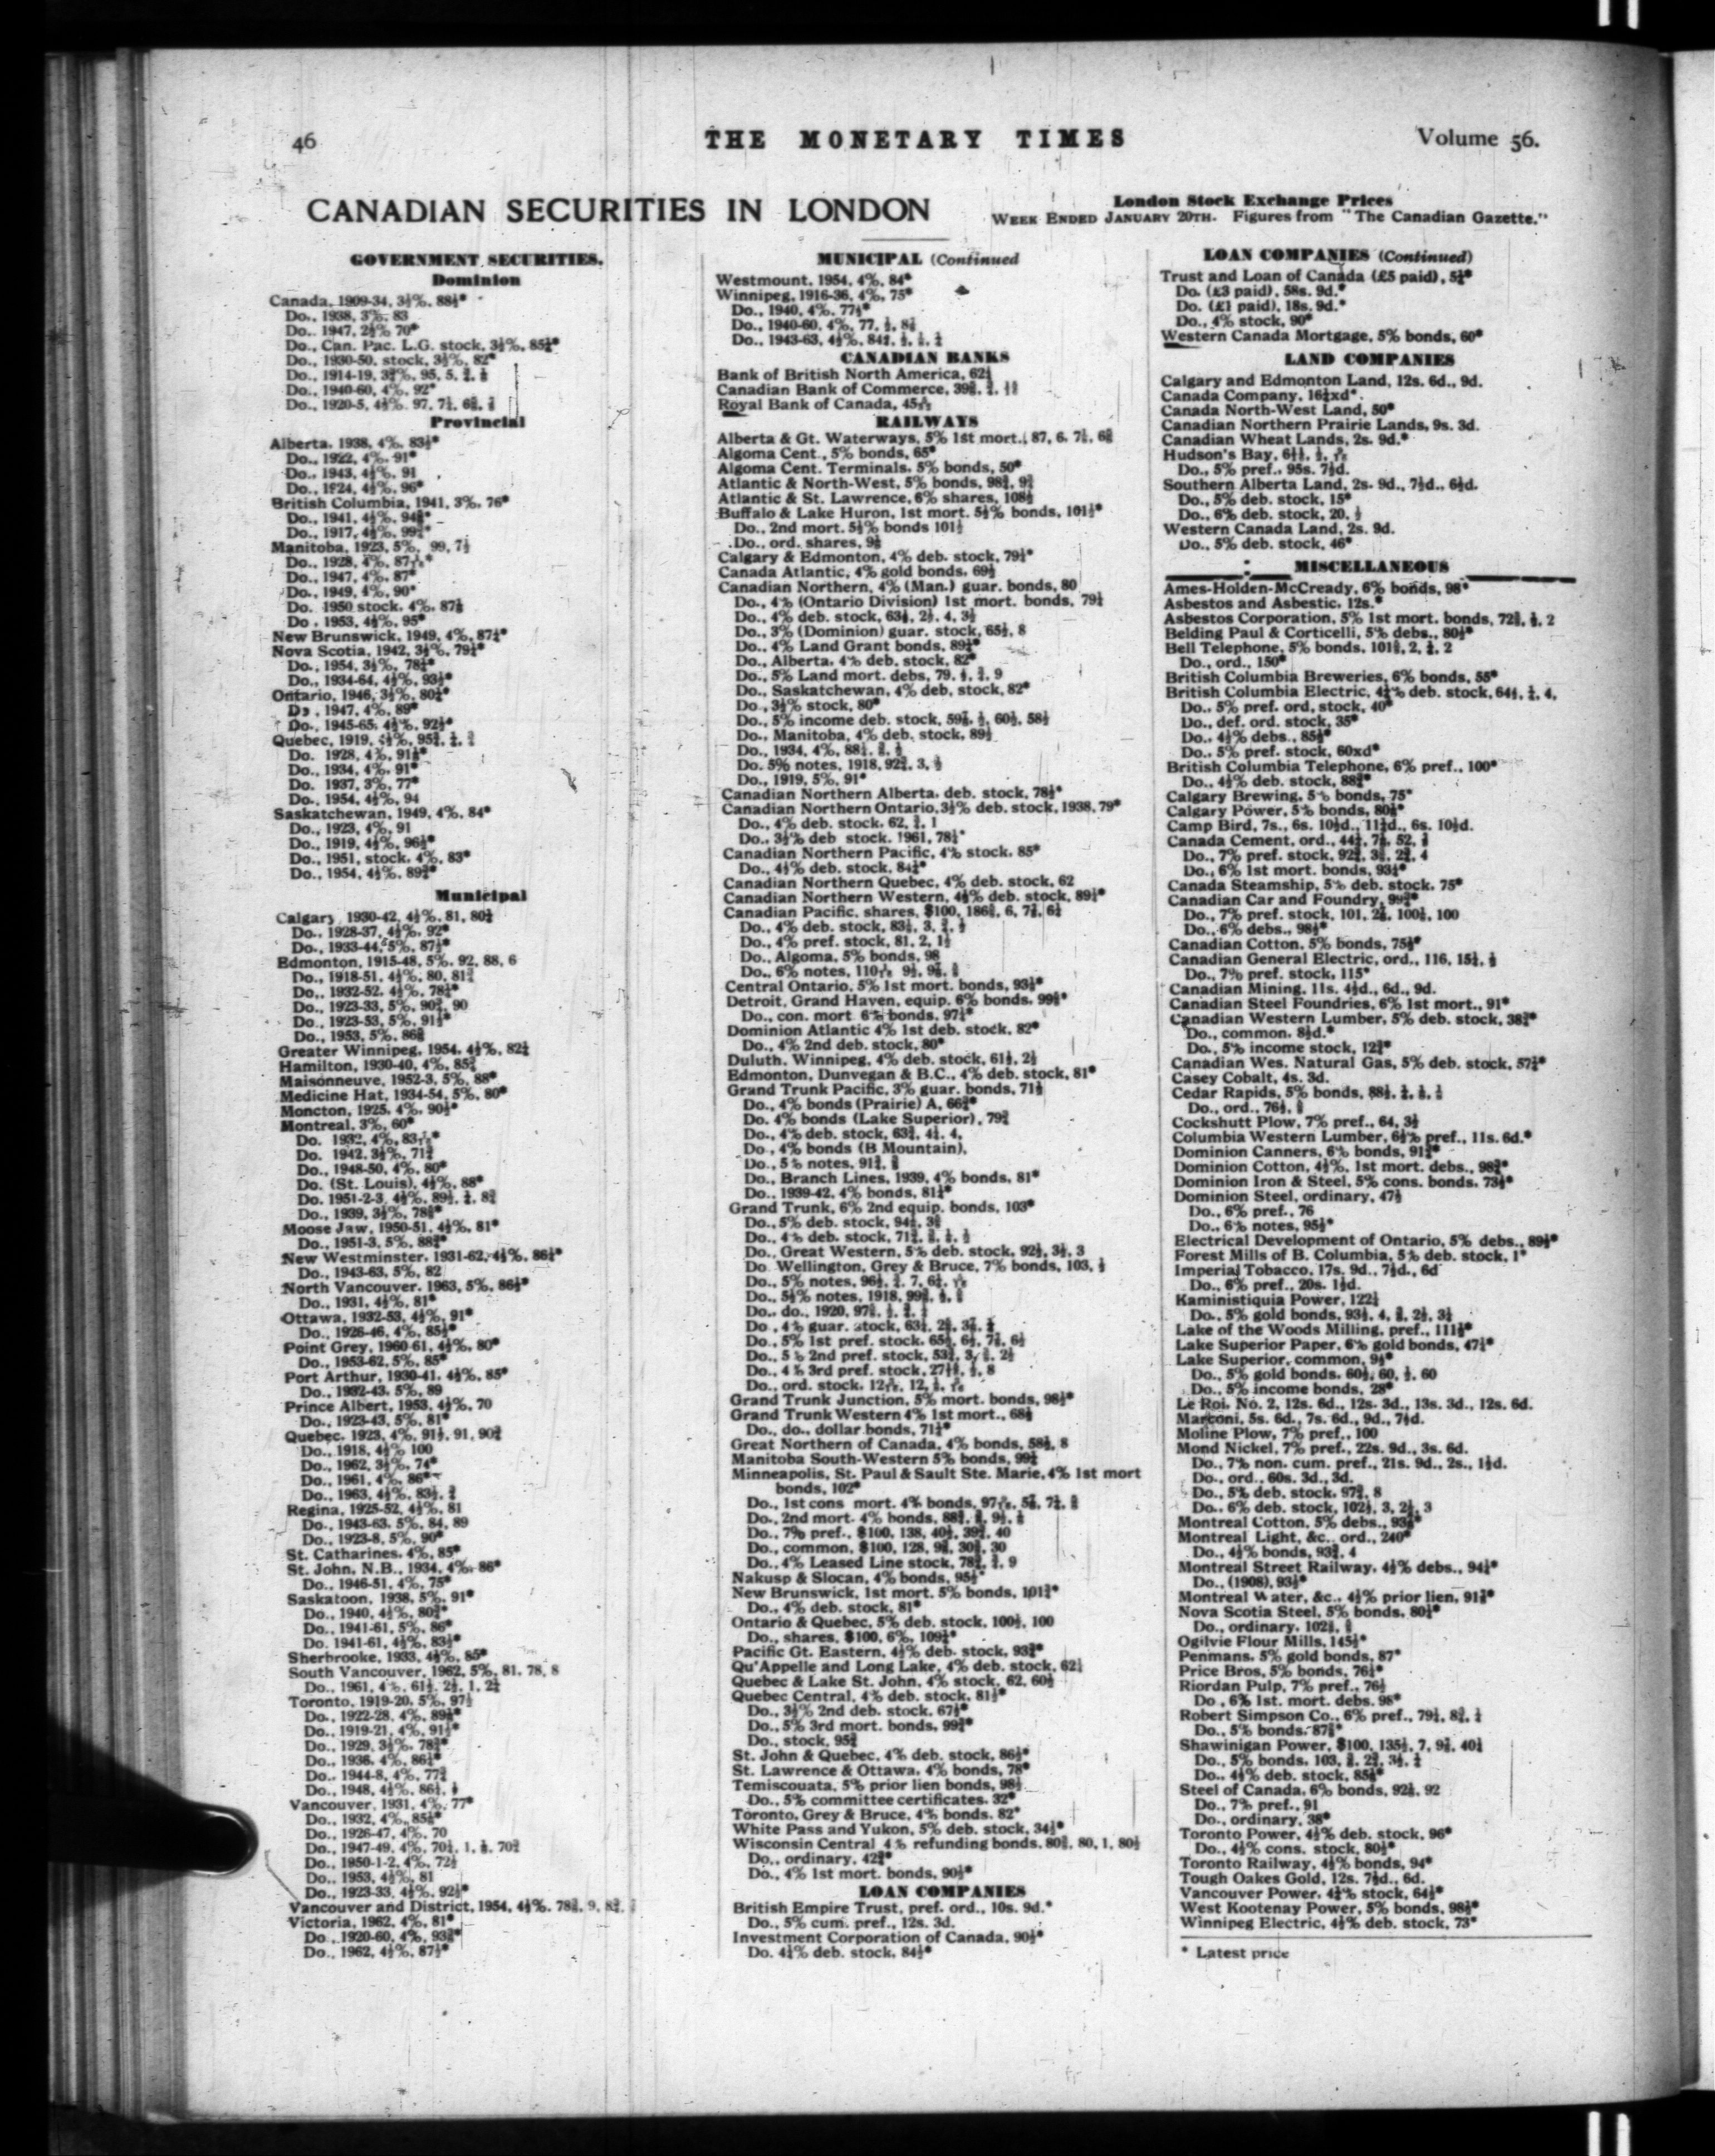 46
THE MONETARY TIMES
Volume 56.
CANADIAN SECURITIES IN LONDON
London Stock Exchange Prices
WEEK ENDED JANUARY 20TH. Figures from "The Canadian Gazette."
GOVERNMENT SECURITIES.
Dominion
Canada, 1909-34, 3½%, 88½*
Do., 1938, 3%, 83
Do., 1947, 2½% 70*
Do., Can. Pac. L.G. stock, 3½%,
Do., 1930-50, stock, 3½%, 82*
Do., 1914-19, 95, 5,
Do., 1940-60, 4%, 92*
Do., 1920-5, 4½%, 97,
Provincial
Alberta, 1938, 4%, 83½*
Do., 1922, 4%, 91*
Do., 1943, 4½%, 91
Do., 1924, 4½%, 96*
British Columbia, 1941, 3%, 76*
Do., 1941, 4½%,
Do., 1917, 4½%,
Manitoba, 1923, 5%, 99, 7½
Do., 1928, 4%,
Do., 1947, 4%, 87*
Do., 1949, 4%, 90*
Do. 1950 stock, 4%,
Do. 1953, 4½%, 95*
New Brunswick, 1949, 4%,
Nova Scotia, 1942, 3½%,
Do., 1954, 3½%,
Do., 1934-64, 4½%, 93½*
Ontario, 1946, 3½%,
Do., 1947, 4%, 89*
Do., 1945-65, 4½%, 92½*
Quebec, 1919,
Do. 1928, 4%,
Do., 1934, 4%, 91*
Do. 1937, 3%, 77*
Do., 1954, 4½%, 94
Saskatchewan, 1949, 4%, 84*
Do., 1923, 4%, 91
Do., 1919, 4½%, 96½*
Do., 1951, stock, 4%, 83*
Do., 1954, 4½%,
Municipal
Calgary 1930-42, 4½%, 81,
Do., 1928-37, 4½%, 92*
Do., 1933-44, 5%, 87½*
Edmonton, 1915-48, 5%, 92, 88, 6
Do., 1918-51, 4½%, 80,
Do., 1932-52, 4½%,
Do., 1923-33, 5%, 90
Do., 1923-53, 5%, 91½*
Do., 1953, 5%,
Greater Winnipeg, 1954, 4½%,
Hamilton, 1930-40, 4%,
Maisonneuve, 1952-3, 5%, 88*
Medicine Hat, 1934-54, 5%, 80*
Moncton, 1925, 4%, 90½*
Montreal, 3%, 60*
Do. 1932, 4%,
Do. 1942, 3½%,
Do., 1948-50, 4%, 80*
Do. (St. Louis), 4½%, 88*
Do. 1951-2-3, 4½%, 89½,
Do., 1939, 3½%,
Moose Jaw, 1950-51, 4½%, 81*
Do., 1951-3, 5%,
New Westminster, 1931-62, 4½%,
Do., 1943-63, 5%, 82
North Vancouver, 1963, 5%,
Do., 1931, 4½%, 81*
Ottawa, 1932-53, 4½%, 91*
Do., 1926-46, 4%, 85½*
Point Grey, 1960-61, 4½%, 80*
Do., 1953-62, 5%, 85*
Port Arthur, 1930-41, 4½%, 85*
Do., 1932-43, 5%, 89
Prince Albert, 1953, 4½%, 70
Do., 1923-43, 5%, 81*
Quebec, 1923, 4%, 91½, 91,
Do., 1918, 4½% 100
Do., 1962, 3½%, 74*
Do., 1961, 4%, 86*
Do., 1963, 4½%, 83½,
Regina, 1925-52, 4½%, 81
Do., 1943-63, 5%, 84, 89
Do., 1923-8, 5%, 90*
St. Catharines, 4%, 85*
St. John, N.B., 1934, 4%, 86*
Do., 1946-51, 4%, 75*
Saskatoon, 1938, 5%, 91*
Do., 1940, 4½%,
Do., 1941-61, 5%, 86*
Do. 1941-61, 4½%, 83½*
Sherbrooke, 1933, 4½%, 85*
South Vancouver, 1962, 5%, 81, 78, 8
Do., 1961, 4%, 61½, 1,
Toronto, 1919-20, 5%, 97½
Do., 1922-28, 4%,
Do., 1919-21, 4%, 91½*
Do., 1929, 3½%,
Do., 1936, 4%, 86½*
Do., 1944-8, 4%,
Do., 1948, 4½%,
Vancouver, 1931, 4%, 77*
Do., 1932, 4%,
Do., 1926-47, 4%, 70
Do., 1947-49, 4%, 70½, 1,
Do., 1950-1-2, 4%, 72½
Do., 1953, 4½%, 81
Do., 1923-33, 4½%, 92½*
Vancouver and District, 1954, 4½%, 9,
Victoria, 1962, 4%, 81*
Do., 1920-60, 4%,
Do., 1962, 4½%, 87½*
MUNICIPAL (Continued
Westmount, 1954, 4%, 84*
Winnipeg, 1916-36, 4%, 75*
Do., 1940, 4%, 77½*
Do., 1940-60, 4%, 77,
Do., 1943-63, 4½%,
CANADIAN BANKS
Bank of British North America,
Canadian Bank of Commerce,
Royal Bank of Canada,
RAILWAYS
Alberta & Gt. Waterways, 5% 1st mort., 87, 6,
Algoma Cent., 5% bonds, 65*
Algoma Cent. Terminals, 5% bonds, 50*
Atlantic & North-West, 5% bonds,
Atlantic & St. Lawrence, 6% shares, 108½
Buffalo & Lake Huron, 1st mort. 5½% bonds, 101½*
Do., 2nd mort. 5½% bonds 101½
Do., ord. shares,
Calgary & Edmonton, 4% deb. stock, 79½*
Canada Atlantic, 4% gold bonds, 69½
Canadian Northern, 4% (Man.) guar. bonds, 80
Do., 4% (Ontario Division) 1st mort. bonds,
Do., 4% deb. stock, 63½, 2½, 4, 3½
Do., 3% (Dominion) guar. stock, 65½, 8
Do., 4% Land Grant bonds,
Do., Alberta, 4% deb. stock, 82*
Do., 5% Land mort. debs, 79, 9
Do., Saskatchewan, 4% deb. stock, 82*
Do., 3½% stock, 80*
Do., 5% income deb. stock, 60½, 58½
Do., Manitoba, 4% deb. stock, 89½
Do., 1934, 4%,
Do. 5% notes, 1918, 3,
Do., 1919, 5%, 91*
Canadian Northern Alberta, deb. stock, 78½*
Canadian Northern Ontario, 3½% deb. stock, 1938, 79*
Do., 4% deb. stock, 62, 1
Do., 3½% deb stock, 1961, 78½*
Canadian Northern Pacific, 4% stock, 85*
Do., 4½% deb. stock,
Canadian Northern Quebec, 4% deb. stock, 62
Canadian Northern Western, 4½% deb. stock, 89½*
Canadian Pacific, shares, $100, 6,
Do., 4% deb. stock, 83½, 3,
Do., 4% pref. stock, 81, 2, 1½
Do., Algoma, 5% bonds, 98
Do., 6% notes,
Central Ontario, 5% 1st mort. bonds, 93½*
Detroit, Grand Haven, equip. 6% bonds,
Do., con. mort 6% bonds,
Dominion Atlantic 4% 1st deb. stock, 82*
Do., 4% 2nd deb. stock, 80*
Duluth, Winnipeg, 4% deb. stock, 61½, 2½
Edmonton, Dunvegan & B.C., 4% deb. stock, 81*
Grand Trunk Pacific, 3% guar. bonds, 71½
Do., 4% bonds (Prairie) A,
Do. 4% bonds (Lake Superior),
Do., 4% deb. stock, 4,
Do., 4% bonds (B Mountain),
Do., 5% notes,
Do., Branch Lines, 1939, 4% bonds, 81*
Do., 1939-42, 4% bonds,
Grand Trunk, 6% 2nd equip. bonds, 103*
Do., 5% deb. stock,
Do., 4% deb. stock,
Do., Great Western, 5% deb. stock, 92½, 3½, 3
Do Wellington, Grey & Bruce, 7% bonds, 103,
Do., 5% notes, 7,
Do., 5½% notes, 1918,
Do., do., 1920,
Do., 4% guar. stock,
Do., 5% 1st pref. stock,
Do., 5% 2nd pref. stock,
Do., 4% 3rd pref. stock, 8
Do., ord. stock, 12,
Grand Trunk Junction, 5% mort. bonds, 98½*
Grand Trunk Western 4% 1st mort., 68½
Do., do., dollar bonds,
Great Northern of Canada, 4% bonds, 58½, 8
Manitoba South-Western 5% bonds,
Minneapolis, St. Paul & Sault Ste. Marie, 4% 1st mort
bonds, 102*
Do., 1st cons mort. 4% bonds,
Do., 2nd mort. 4% bonds,
Do., 7% pref., $100, 138, 40½, 40
Do., common, $100, 128, 30
Do., 4% Leased Line stock, 9
Nakusp & Slocan, 4% bonds, 95½*
New Brunswick, 1st mort. 5% bonds,
Do., 4% deb. stock, 81*
Ontario & Quebec, 5% deb. stock, 100½, 100
Do., shares, $100, 6%,
Pacific Gt. Eastern, 4½% deb. stock,
Qu'Appelle and Long Lake, 4% deb. stock,
Quebec & Lake St. John, 4% stock, 62, 60½
Quebec Central, 4% deb. stock, 81½*
Do., 3½% 2nd deb. stock, 67½*
Do., 5% 3rd mort. bonds,
Do., stock,
St. John & Quebec, 4% deb. stock, 86½*
St. Lawrence & Ottawa, 4% bonds, 78*
Temiscouata, 5% prior lien bonds, 98½
Do., 5% committee certificates, 32*
Toronto, Grey & Bruce, 4% bonds, 82*
White Pass and Yukon, 5% deb. stock, 34½*
Wisconsin Central 4% refunding bonds, 80, 1, 80½
Do., ordinary,
Do., 4% 1st mort. bonds, 90½*
LOAN COMPANIES
British Empire Trust, pref. ord., 10s. 9d.*
Do., 5% cum. pref., 12s. 3d.
Investment Corporation of Canada, 90½*
Do. deb. stock, 84½*
LOAN COMPANIES (Continued)
Trust and Loan of Canada (£5 paid),
Do. (£3 paid), 58s. 9d.*
Do. (£1 paid), 18s. 9d.*
Do., 4% stock, 90*
Western Canada Mortgage, 5% bonds, 60*
LAND COMPANIES
Calgary and Edmonton Land, 12s. 6d., 9d.
Canada Company,
Canada North-West Land, 50*
Canadian Northern Prairie Lands, 9s. 3d.
Canadian Wheat Lands, 2s. 9d.*
Hudson's Bay,
Do., 5% pref., 95s. 7½d.
Southern Alberta Land, 2s. 9d., 7½d., 6½d.
Do., 5% deb. stock, 15*
Do., 6% deb. stock, 20, ½
Western Canada Land, 2s. 9d.
Do., 5% deb. stock, 46*
MISCELLANEOUS
Ames-Holden-McCready, 6% bonds, 98*
Asbestos and Asbestic, 12s.*
Asbestos Corporation, 5% 1st mort. bonds, 2
Belding Paul & Corticelli, 5% debs., 80½*
Bell Telephone, 5% bonds, 2, 2
Do., ord., 150*
British Columbia Breweries, 6% bonds, 55*
British Columbia Electric, deb. stock, 4,
Do., 5% pref. ord. stock, 40*
Do., def. ord. stock, 35*
Do., debs., 85½*
Do., 5% pref. stock, 60xd*
British Columbia Telephone, 6% pref., 100*
Do., 4½% deb. stock,
Calgary Brewing, 5% bonds, 75*
Calgary Power, 5% bonds, 80½*
Camp Bird, 7s., 6s. 10½d., 6s. 10½d.
Canada Cement, ord., 52,
Do., 7% pref. stock, 4
Do., 6% 1st mort. bonds,
Canada Steamship, 5% deb. stock, 75*
Canadian Car and Foundry,
Do., 7% pref. stock, 101, 100½, 100
Do., 6% debs., 98½*
Canadian Cotton, 5% bonds, 75½*
Canadian General Electric, ord., 116, 15½, ½
Do., 7% pref. stock, 115*
Canadian Mining, 11s. 4½d., 6d., 9d.
Canadian Steel Foundries, 6% 1st mort., 91*
Canadian Western Lumber, 5% deb. stock,
Do., common, 8½d.*
Do., 5% income stock,
Canadian Wes. Natural Gas, 5% deb. stock,
Casey Cobalt, 4s. 3d.
Cedar Rapids, 5% bonds,
Do., ord., 76½,
Cockshutt Plow, 7% pref., 64, 3½
Columbia Western Lumber, 6½% pref., 11s. 6d.*
Dominion Canners, 6% bonds,
Dominion Cotton, 4½%, 1st mort. debs.,
Dominion Iron & Steel, 5% cons. bonds, 73½*
Dominion Steel, ordinary, 47½
Do., 6% pref., 76
Do., 6% notes, 95½*
Electrical Development of Ontario, 5% debs., 89½*
Forest Mills of B. Columbia, 5% deb. stock, 1*
Imperial Tobacco, 17s. 9d., 7½d., 6d
Do., 6% pref., 20s. 1½d.
Kaministiquia Power, 122½
Do., 5% gold bonds, 93½, 4, 2½, 3½
Lake of the Woods Milling, pref., 111½*
Lake Superior Paper, 6% gold bonds,
Lake Superior, common, 9½*
Do., 5% gold bonds, 60½, 60, ½, 60
Do., 5% income bonds, 28*
Le Roi, No. 2, 12s. 6d., 12s. 3d., 13s. 3d., 12s. 6d.
Marconi, 5s. 6d., 7s. 6d., 9d., 7½d.
Moline Plow, 7% pref., 100
Mond Nickel, 7% pref., 22s. 9d., 3s. 6d.
Do., 7% non. cum. pref., 21s. 9d., 2s., 1½d.
Do., ord., 60s. 3d., 3d.
Do., 5% deb. stock, 8
Do., 6% deb. stock, 102½, 3, 2½, 3
Montreal Cotton, 5% debs.,
Montreal Light, &c., ord., 240*
Do., 4½% bonds, 4
Montreal Street Railway, 4½% debs., 94½*
Do., (1908), 93½*
Montreal Water, &c., 4½% prior lien,
Nova Scotia Steel, 5% bonds,
Do., ordinary,
Ogilvie Flour Mills, 145½*
Penmans, 5% gold bonds, 87*
Price Bros, 5% bonds, 76½*
Riordan Pulp, 7% pref., 76½
Do., 6% 1st. mort. debs. 98*
Robert Simpson Co., 6% pref., 79½,
Do., 5% bonds,
Shawinigan Power, $100, 135½, 7,
Do., 5% bonds, 103,
Do., 4½% deb. stock,
Steel of Canada, 6% bonds, 92½, 92
Do., 7% pref., 91
Do., ordinary, 38*
Toronto Power, 4½% deb. stock, 96*
Do., 4½% cons. stock, 80½*
Toronto Railway, 4½% bonds, 94*
Tough Oakes Gold, 12s. 7½d., 6d.
Vancouver Power, stock, 64½*
West Kootenay Power, 5% bonds, 98½*
Winnipeg Electric, 4½% deb. stock, 73*
* Latest price